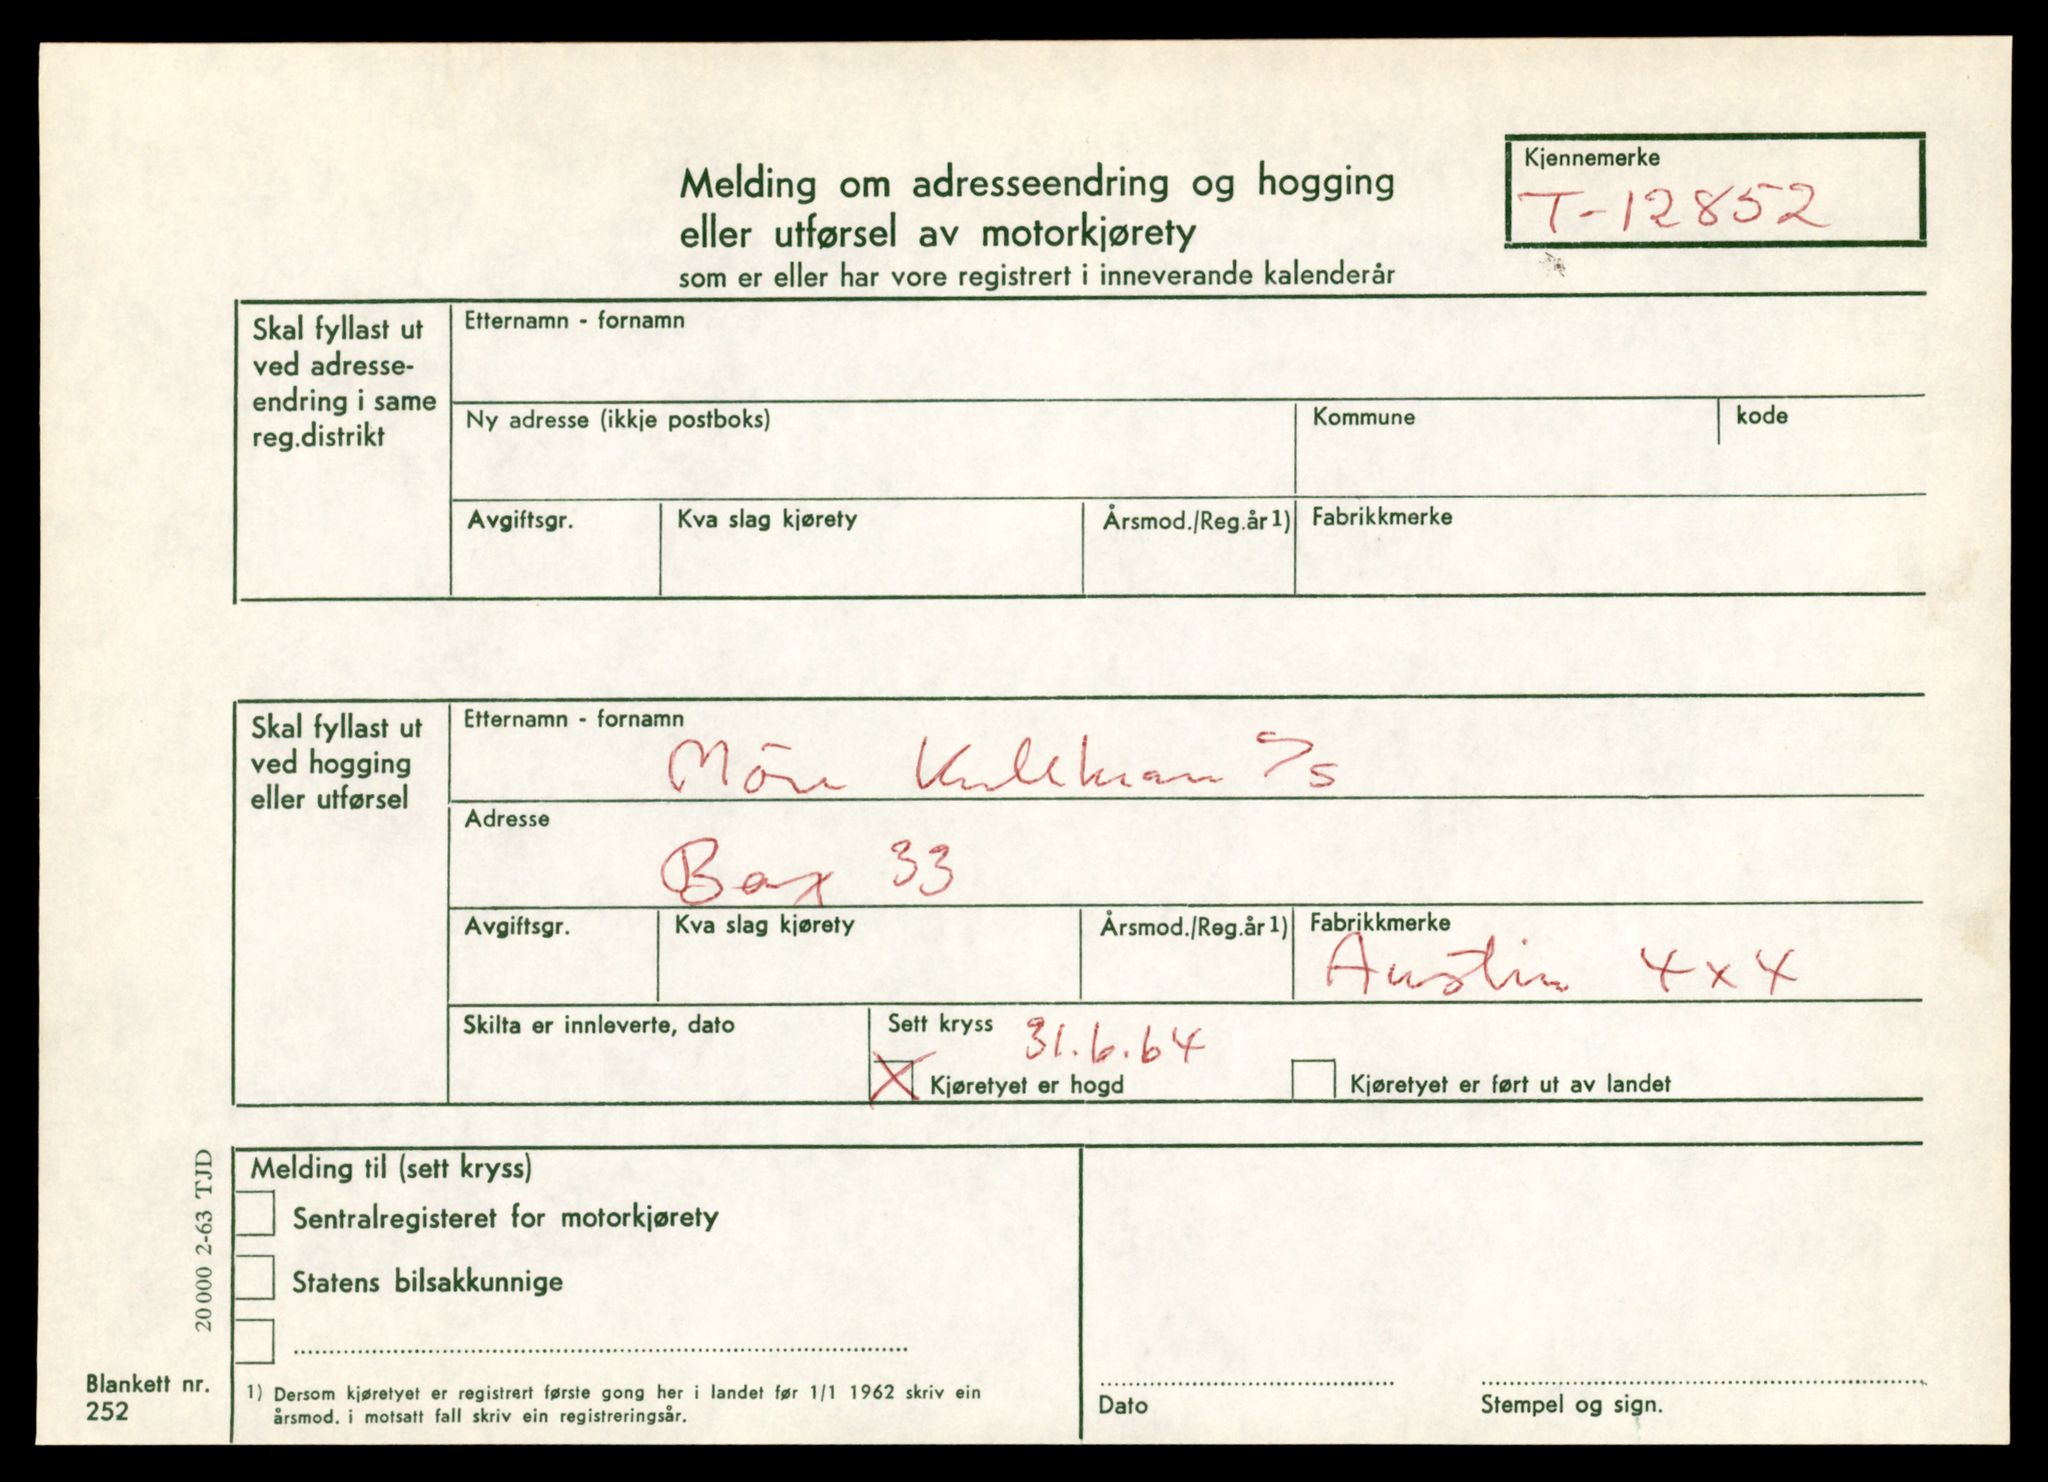 Melding om adresseendring og hogging
eller utførsel av motorkjørety
som er eller har vore registrert i inneverande kalenderår
Kjennemerke
T-12852
Skal fyllast ut
ved adresse-
endring i same
reg.distrikt
Etternamn - fornamn
Ny adresse (ikkje postboks)
Kommune
kode
Avgiftsgr.
Kva slag kjørety
Årsmod./Reg.år 1)
Fabrikkmerke
Skal fyllast ut
ved hogging
eller utførsel
Etternamn - fornamn
Möre
Adresse
Box 33
Avgiftsgr.
Kva slag kjørety
Årsmod./Reg.år 1)
Fabrikkmerke
Austin 4x4
Skilta er innleverte, dato
Sett kryss
31.6.64
Kjøretyet er hogd
Kjøretyet er ført ut av landet
Melding til (sett kryss)
Sentralregisteret for motorkjørety
Statens bilsakkunnige
20000 2-63 TJD
Blankett nr.
252
1) Dersom kjøretyet er registrert første gong her i landet før 1/1 1962 skriv ein
årsmod. i motsatt fall skriv ein registreringsår.
Dato
Stempel og sign.